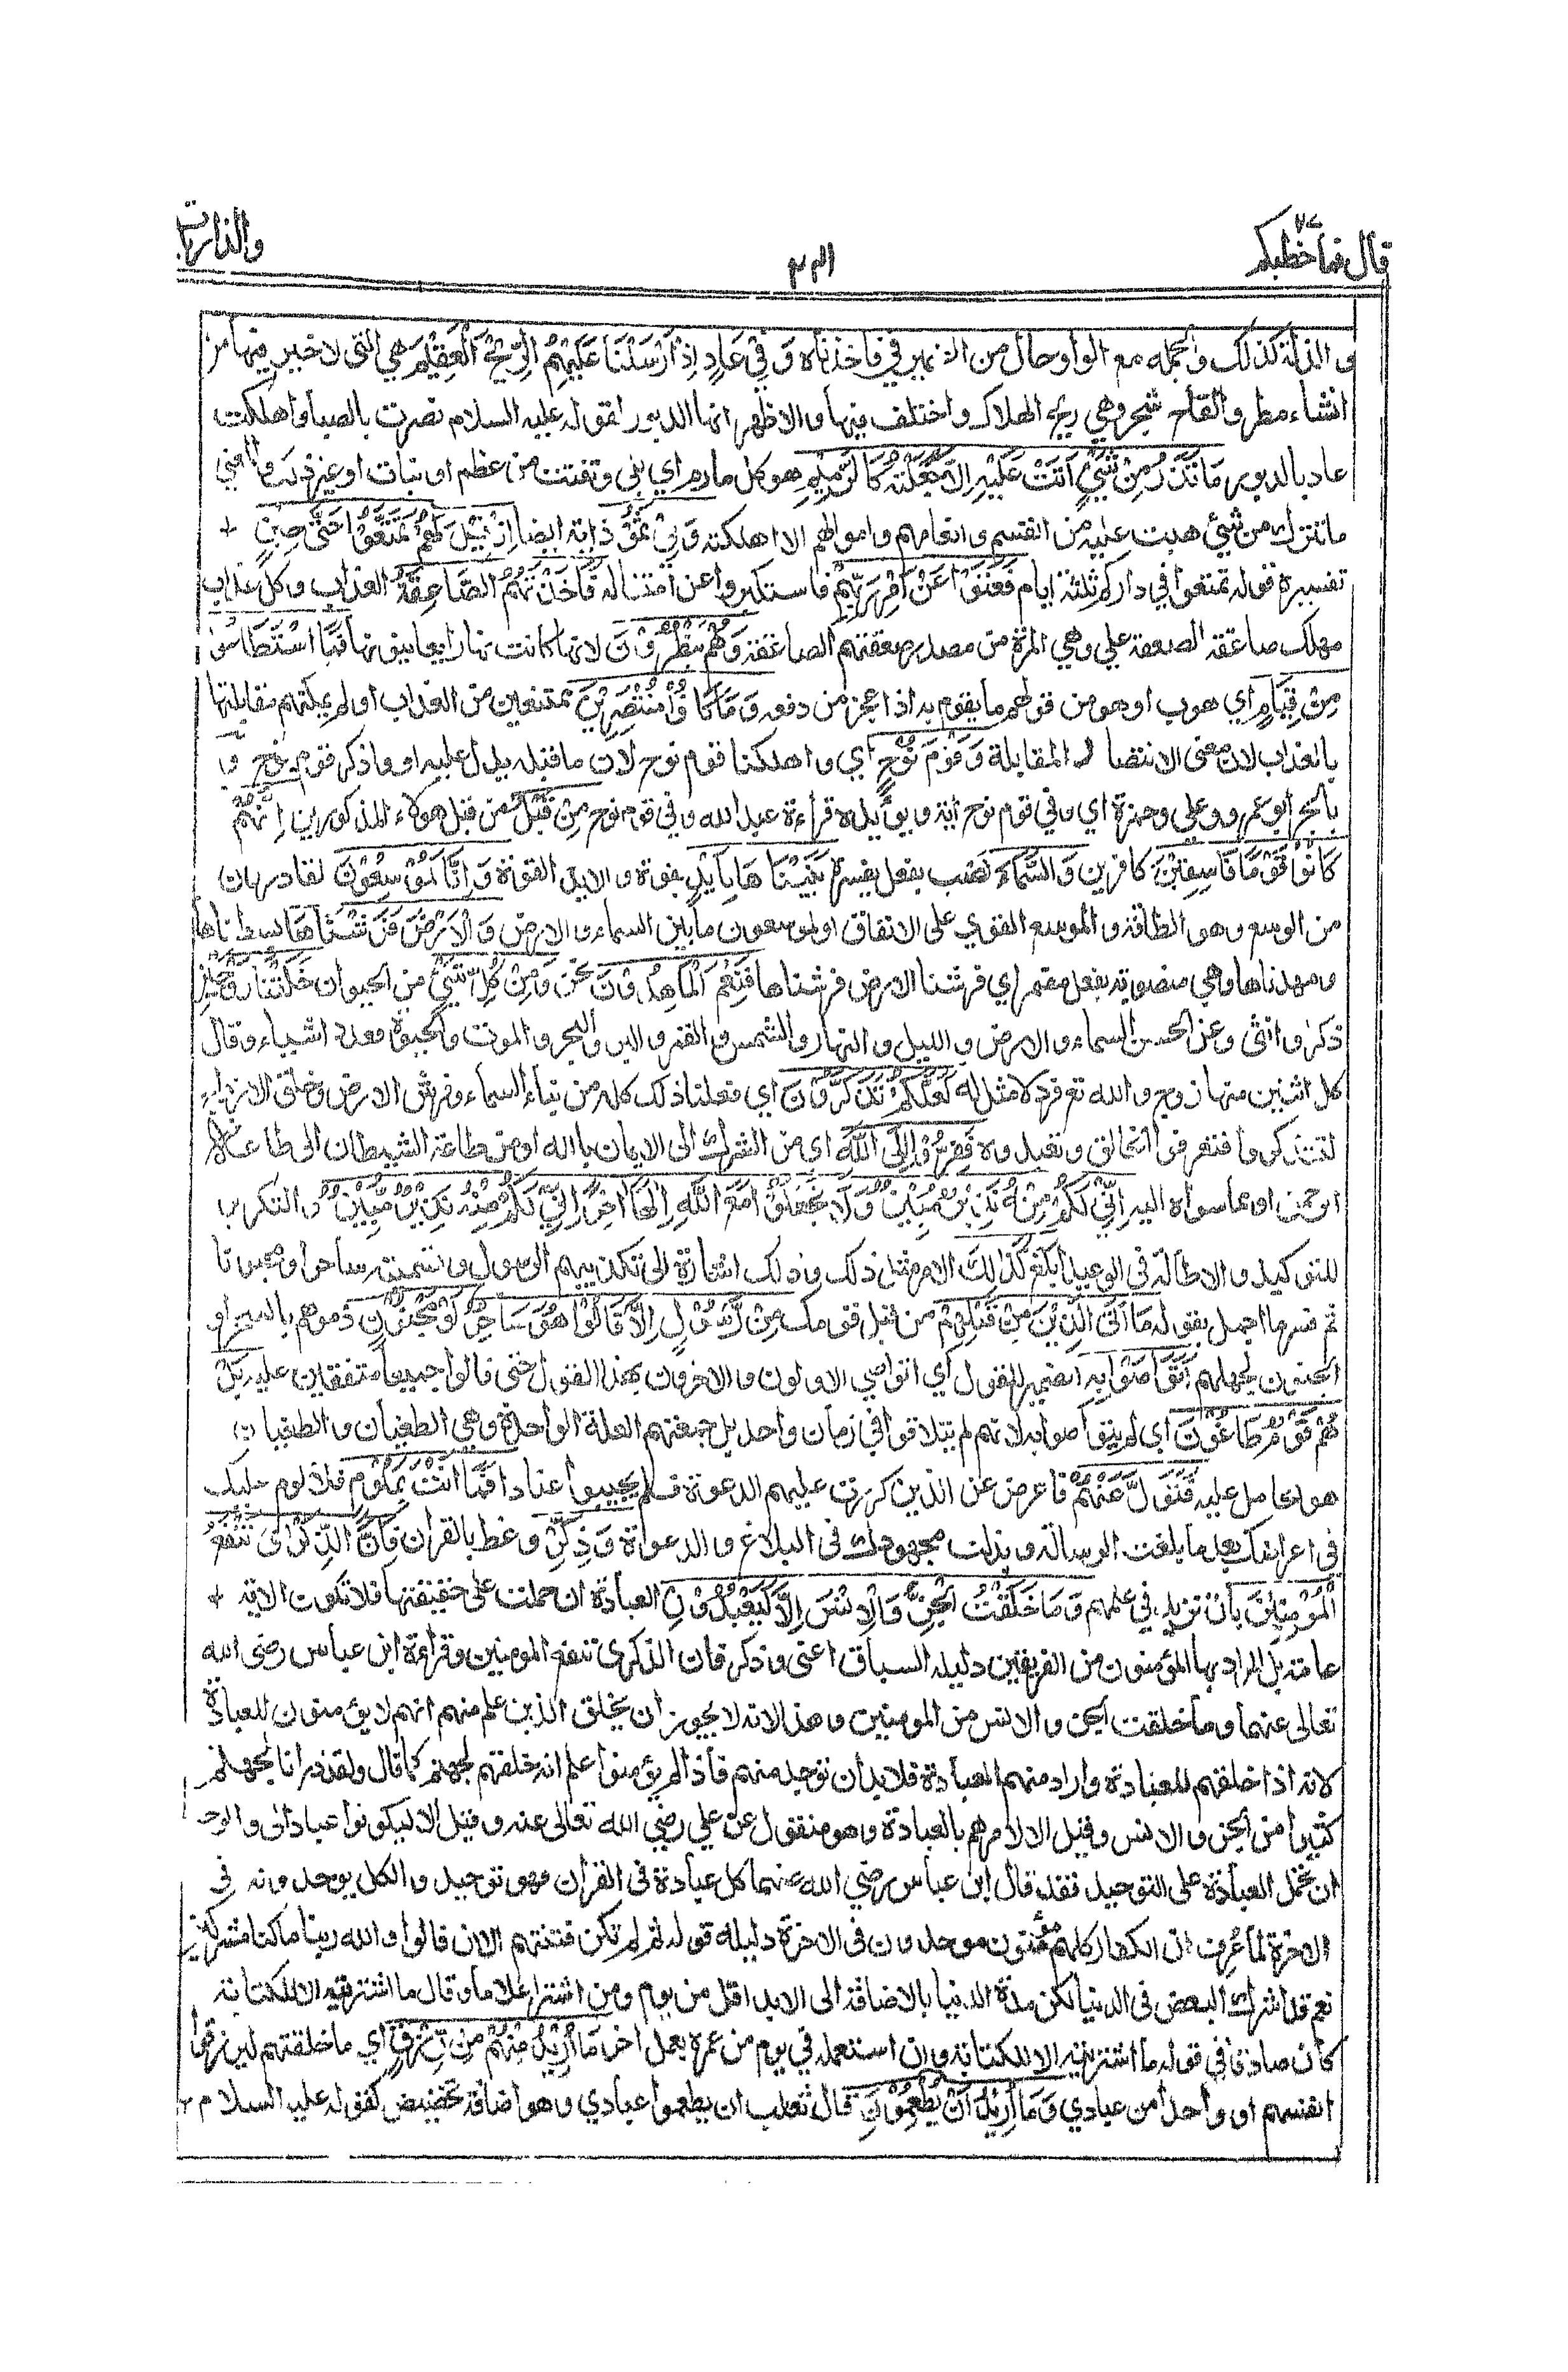 قال فما خطبكم
٢٧
والذاريات
و الذلة كذلك والجملة مع الواو حال من الضمير في فاخذناه وَفِيْ عَادٍ اِذْ اَرْسَلْنَا عَلَيْهِمُ الرِّيْحَ الْعَقِيْمَ هي التي لا خير فيها من
انشاء مطر والقاح شجر وهي ريح الهلاك واختلف فيها والاظهر انها الدبور لقوله عليه السلام نصرت بالصبا واهلكت
عاد بالدبور مَا تَذَرُ مِنْ شَيْئٍ اَتَتْ عَلَيْهِ اِلَّا جَعَلَتْهُ كَالرَّمِيْمِ هو كل ما رم اي بلي وتفتت من عظم او نبات او غير ذلك والمعنى
ما تترك من شيئ هبت عليه من انفسهم وانعامهم واموالهم الا اهلكته وَفِيْ ثَمُوْدَ اٰية ايضا اِذْ قِيْلَ لَهُمْ تَمَتَّعُوْا حَتّٰى حِيْنٍ
تفسيره قوله تمتعوا في داركم ثلثة ايام فَعَتَوْا عَنْ اَمْرِ رَبِّهِمْ فاستكبروا عن امتثاله فَاَخَذَتْهُمُ الصَّاعِقَةُ العذاب وكل عذاب
مهلك صاعقة الصعقة علي وهي المرة من مصدر صعقتهم الصاعقة وَهُمْ يَنْظُرُوْنَ لانها كانت نهارا يعاينونها فَمَا اسْتَطَاعُوْا
مِنْ قِيَامٍ اي هرب او هو من قولهم ما يقوم به اذا عجز من دفعه وَمَا كَانُوْا مُنْتَصِرِيْنَ ممتنعين من العذاب او لم يمكنهم مقابلتنا
بالعذاب لان معنى الانتصار المقابلة وَقَوْمَ نُوْحٍ اي واهلكنا قوم نوح لان ما قبله يدل عليه او واذكر قوم نوح و
بالجر ابو عمرو وعلي وحمزة اي وفي قوم نوح اية ويؤيده قراءة عبد الله وفي قوم نوح مِنْ قَبْلُ من قبل هولاء المذكورين اِنَّهُمْ
كَانُوْا قَوْمًا فَاسِقِيْنَ كافرين وَالسَّمَاءَ نصب بفعل يفسره بَنَيْنَاهَا بِاَيْدٍ بقوة والايد القوة وَاِنَّا لَمُوْسِعُوْنَ لقادرون
من الوسع وهو الطاقة والموسع القوي على الانفاق او لموسعون ما بين السماء والارض وَالْاَرْضَ فَرَشْنَاهَا بسطناها
ومهدناها وهي منصوبة بفعل مضمر اي فرشنا الارض فرشناها فَنِعْمَ الْمَاهِدُوْنَ نحن وَمِنْ كُلِّ شَيْئٍ من الحيوان خَلَقْنَا زَوْجَيْنِ
ذكر وانثى وعن الحسن السماء والارض والليل والنهار والشمس والقمر والبر والبحر والموت والحيوة فعدد اشياء وقال
كل اثنين منها زوج والله تع فرد لا مثل له لَعَلَّكُمْ تَذَكَّرُوْنَ اي فعلنا ذلك كله من بناء السماء وفرش الارض وخلق الازواج
لتتذكروا فتعرفوا الخالق وتعبدوه فَفِرُّوْا اِلَى اللّٰهِ اي من الشرك الى الايمان بالله او من طاعة الشيطان الى طاعة
الرحمن او مما سواه اليه اِنِّيْ لَكُمْ مِنْهُ نَذِيْرٌ مُبِيْنٌ وَلَا تَجْعَلُوْا مَعَ اللّٰهِ اِلٰهًا اٰخَرَ اِنِّيْ لَكُمْ مِنْهُ نَذِيْرٌ مُبِيْنٌ والتكرير
للتوكيد والاطالة في الوعيد ابلغ كَذٰلِكَ الامر مثل ذلك وذلك اشارة الى تكذيبهم الرسول وتسميته ساحرا ومجنونا
ثم فسر ما اجمل بقوله مَا اَتَى الَّذِيْنَ مِنْ قَبْلِهِمْ من قبل قومك مِنْ رَسُوْلٍ اِلَّا قَالُوْا هُوَ سَاحِرٌ اَوْ مَجْنُوْنٌ رموهم بالسحر او
الجنون لجهلهم اَتَوَاصَوْا بِهِ الضمير للقول اي اتواصى الاولون والاخرون بهذا القول حتى قالوا جميعا متفقين عليه بَلْ
هُمْ قَوْمٌ طَاغُوْنَ اي لم يتواصوا به لانهم لم يتلاقوا في زمان واحد بل جمعتهم العلة الواحدة وهي الطغيان والطغيان
هو الحامل عليه فَتَوَلَّ عَنْهُمْ فاعرض عن الذين كررت عليهم الدعوة فلم يجيبوا عنادا فَمَا اَنْتَ بِمَلُوْمٍ فلا لوم عليك
في اعراضك بعد ما بلغت الرسالة وبذلت مجهودك في البلاغ والدعوة وَذَكِّرْ وعظ بالقران فَاِنَّ الذِّكْرٰى تَنْفَعُ
الْمُؤْمِنِيْنَ بان تزيد في علمهم وَمَا خَلَقْتُ الْجِنَّ وَالْاِنْسَ اِلَّا لِيَعْبُدُوْنِ العبادة ان حملت على حقيقتها فلا تكون الاية
عامة بل المراد بها المؤمنون من الفريقين دليله السياق اعني وذكر فان الذكرى تنفع المومنين وقراءة ابن عباس رضى الله
تعالى عنهما وما خلقت الجن والانس من المومنين وهذا لانه لا يجوز ان يخلق الذين علم منهم انهم لا يؤمنون للعبادة
لانه اذا خلقهم للعبادة واراد منهم العبادة فلا بد ان توجد منهم فاذا لم يؤمنوا علم انه خلقهم لجهنم كما قال ولقد ذرانا لجهنم
كثيرا من الجن والانس وقيل الا لامرهم بالعبادة وهو منقول عن علي رضي الله تعالى عنه وقيل الا ليكونوا عبادا لي والوجه
ان تحمل العبادة على التوحيد فقد قال ابن عباس رضي الله عنهما كل عبادة في القران فهو توحيد والكل يوحدونه في
الاخرة لما عرف ان الكفار كلهم مؤمنون موحدون في الاخرة دليله قوله ثم لم تكن فتنتهم الا ان قالوا والله ربنا ما كنا مشركين
نعم قد اشرك البعض في الدنيا لكن مدة الدنيا بالاضافة الى الابد اقل من يوم ومن اشترا غلاما وقال ما اشتريته الا للكتابة
كان صادقا في قوله ما اشتريته الا للكتابة وان استعمله في يوم من عمره بعمل اخر مَا اُرِيْدُ مِنْهُمْ مِنْ رِّزْقٍ اي ما خلقتهم ليرزقوا
انفسهم او واحدا من عبادي وَمَا اُرِيْدُ اَنْ يُطْعِمُوْنِ قال ثعلب ان يطعموا عبادي وهو اضافة تخصيص كقوله عليه السلام